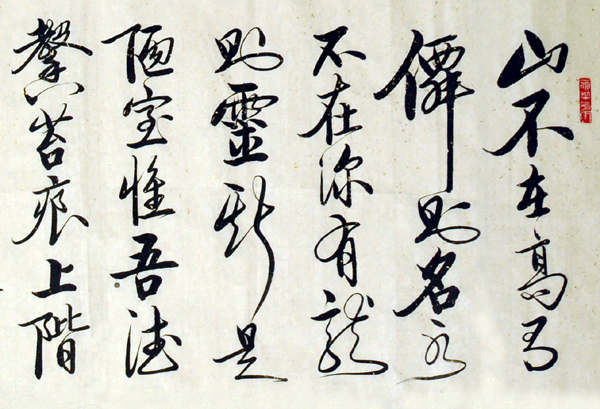 山不在高有
僊则名水
不在深有龍
则靈斯是
陋室惟吾德
馨苔痕上階